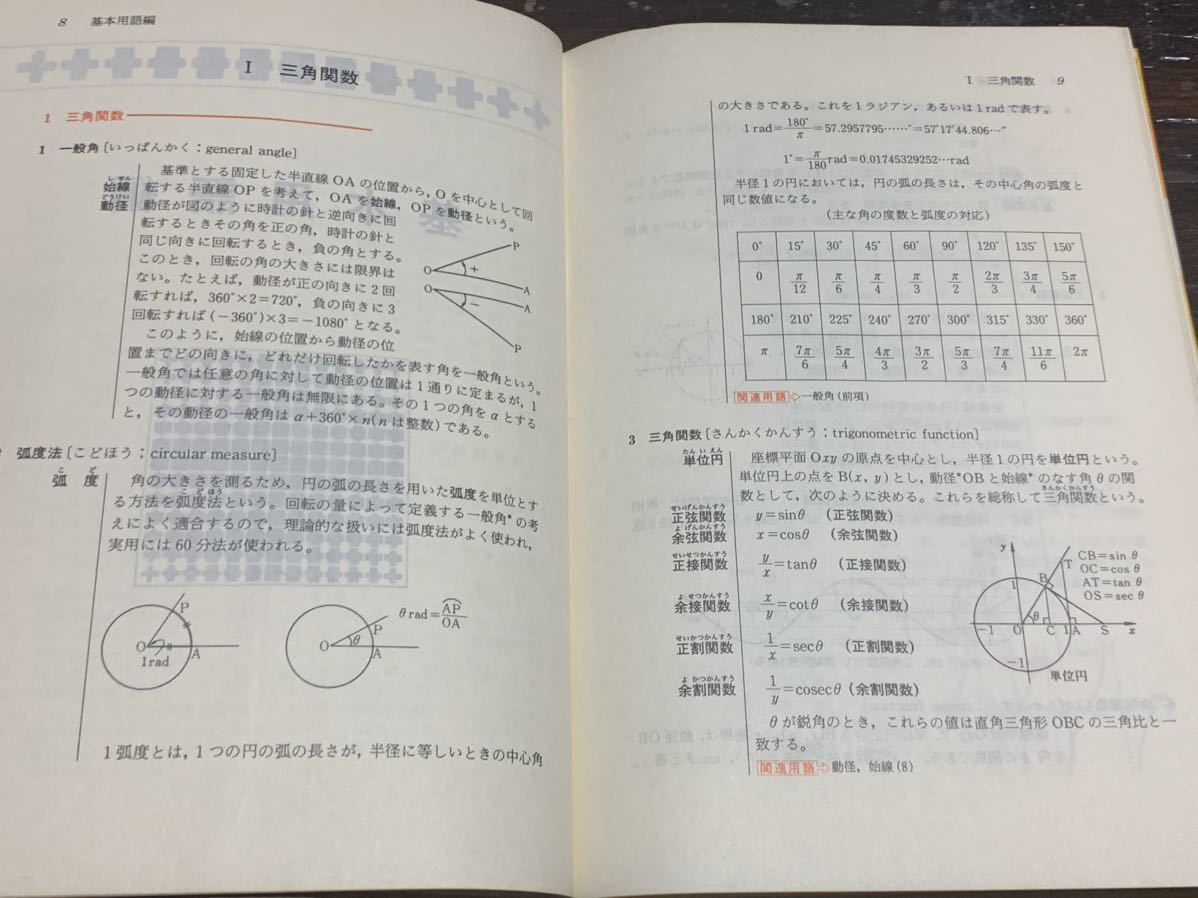 8 基本用語編
I 三角関数
1 三角関数
1 一般角〔いっぱんかく:general angle〕
基準とする固定した半直線OAの位置から,Oを中心として回
しせん
始線 転する半直線OPを考えて,OAを始線,OPを動径という。
どうけい
動径 動径が図のように時計の針と逆向きに回
転するときその角を正の角,時計の針と
同じ向きに回転するとき,負の角とする。
このとき,回転の角の大きさには限界は
ない。たとえば,動径が正の向きに2回
転すれば,360°×2=720°,負の向きに3
回転すれば(−360°)×3=−1080°となる。
このように,始線の位置から動径の位
置までどの向きに,どれだけ回転したかを表す角を一般角という。
一般角では任意の角に対して動径の位置は1通りに定まるが,1
つの動径に対する一般角は無限にある。その1つの角をαとする
と,その動径の一般角はα+360°×n(nは整数)である。
P
O + A
O − A
P
弧度法〔こどほう:circular measure〕
こ ど
弧度 角の大きさを測るため,円の弧の長さを用いた弧度を単位とす
こどほう
る方法を弧度法という。回転の量によって定義する一般角*の考
えによく適合するので,理論的な扱いには弧度法がよく使われ,
実用には60分法が使われる。
P
O A
1rad
P
O θ A
θ rad=AP/OA
1弧度とは,1つの円の弧の長さが,半径に等しいときの中心角
I 三角関数 9
の大きさである。これを1ラジアン,あるいは1radで表す。
1 rad=180°/π=57.2957795……°=57°17′44.806…″
1°=π/180 rad=0.01745329252…rad
半径1の円においては,円の弧の長さは,その中心角の弧度と
同じ数値になる。
(主な角の度数と弧度の対応)
0° 15° 30° 45° 60° 90° 120° 135° 150°
0 π/12 π/6 π/4 π/3 π/2 2π/3 3π/4 5π/6
180° 210° 225° 240° 270° 300° 315° 330° 360°
π 7π/6 5π/4 4π/3 3π/2 5π/3 7π/4 11π/6 2π
関連用語 一般角(前項)
3 三角関数〔さんかくかんすう:trigonometric function〕
たんいえん
単位円 座標平面Oxyの原点を中心とし,半径1の円を単位円という。
単位円上の点をB(x, y)とし,動径*OBと始線*のなす角θの関
さんかくかんすう
数として,次のように決める。これらを総称して三角関数という。
せいげんかんすう
正弦関数 y=sinθ (正弦関数)
よげんかんすう
余弦関数 x=cosθ (余弦関数)
せいせつかんすう
正接関数 y/x=tanθ (正接関数)
よせつかんすう
余接関数 x/y=cotθ (余接関数)
せいかつかんすう
正割関数 1/x=secθ (正割関数)
よかつかんすう
余割関数 1/y=cosecθ (余割関数)
y
1 B T
θ
−1 O C 1 A S x
−1
単位円
CB=sin θ
OC=cos θ
AT=tan θ
OS=sec θ
θが鋭角のとき,これらの値は直角三角形OBCの三角比と一
致する。
関連用語 動径,始線(8)